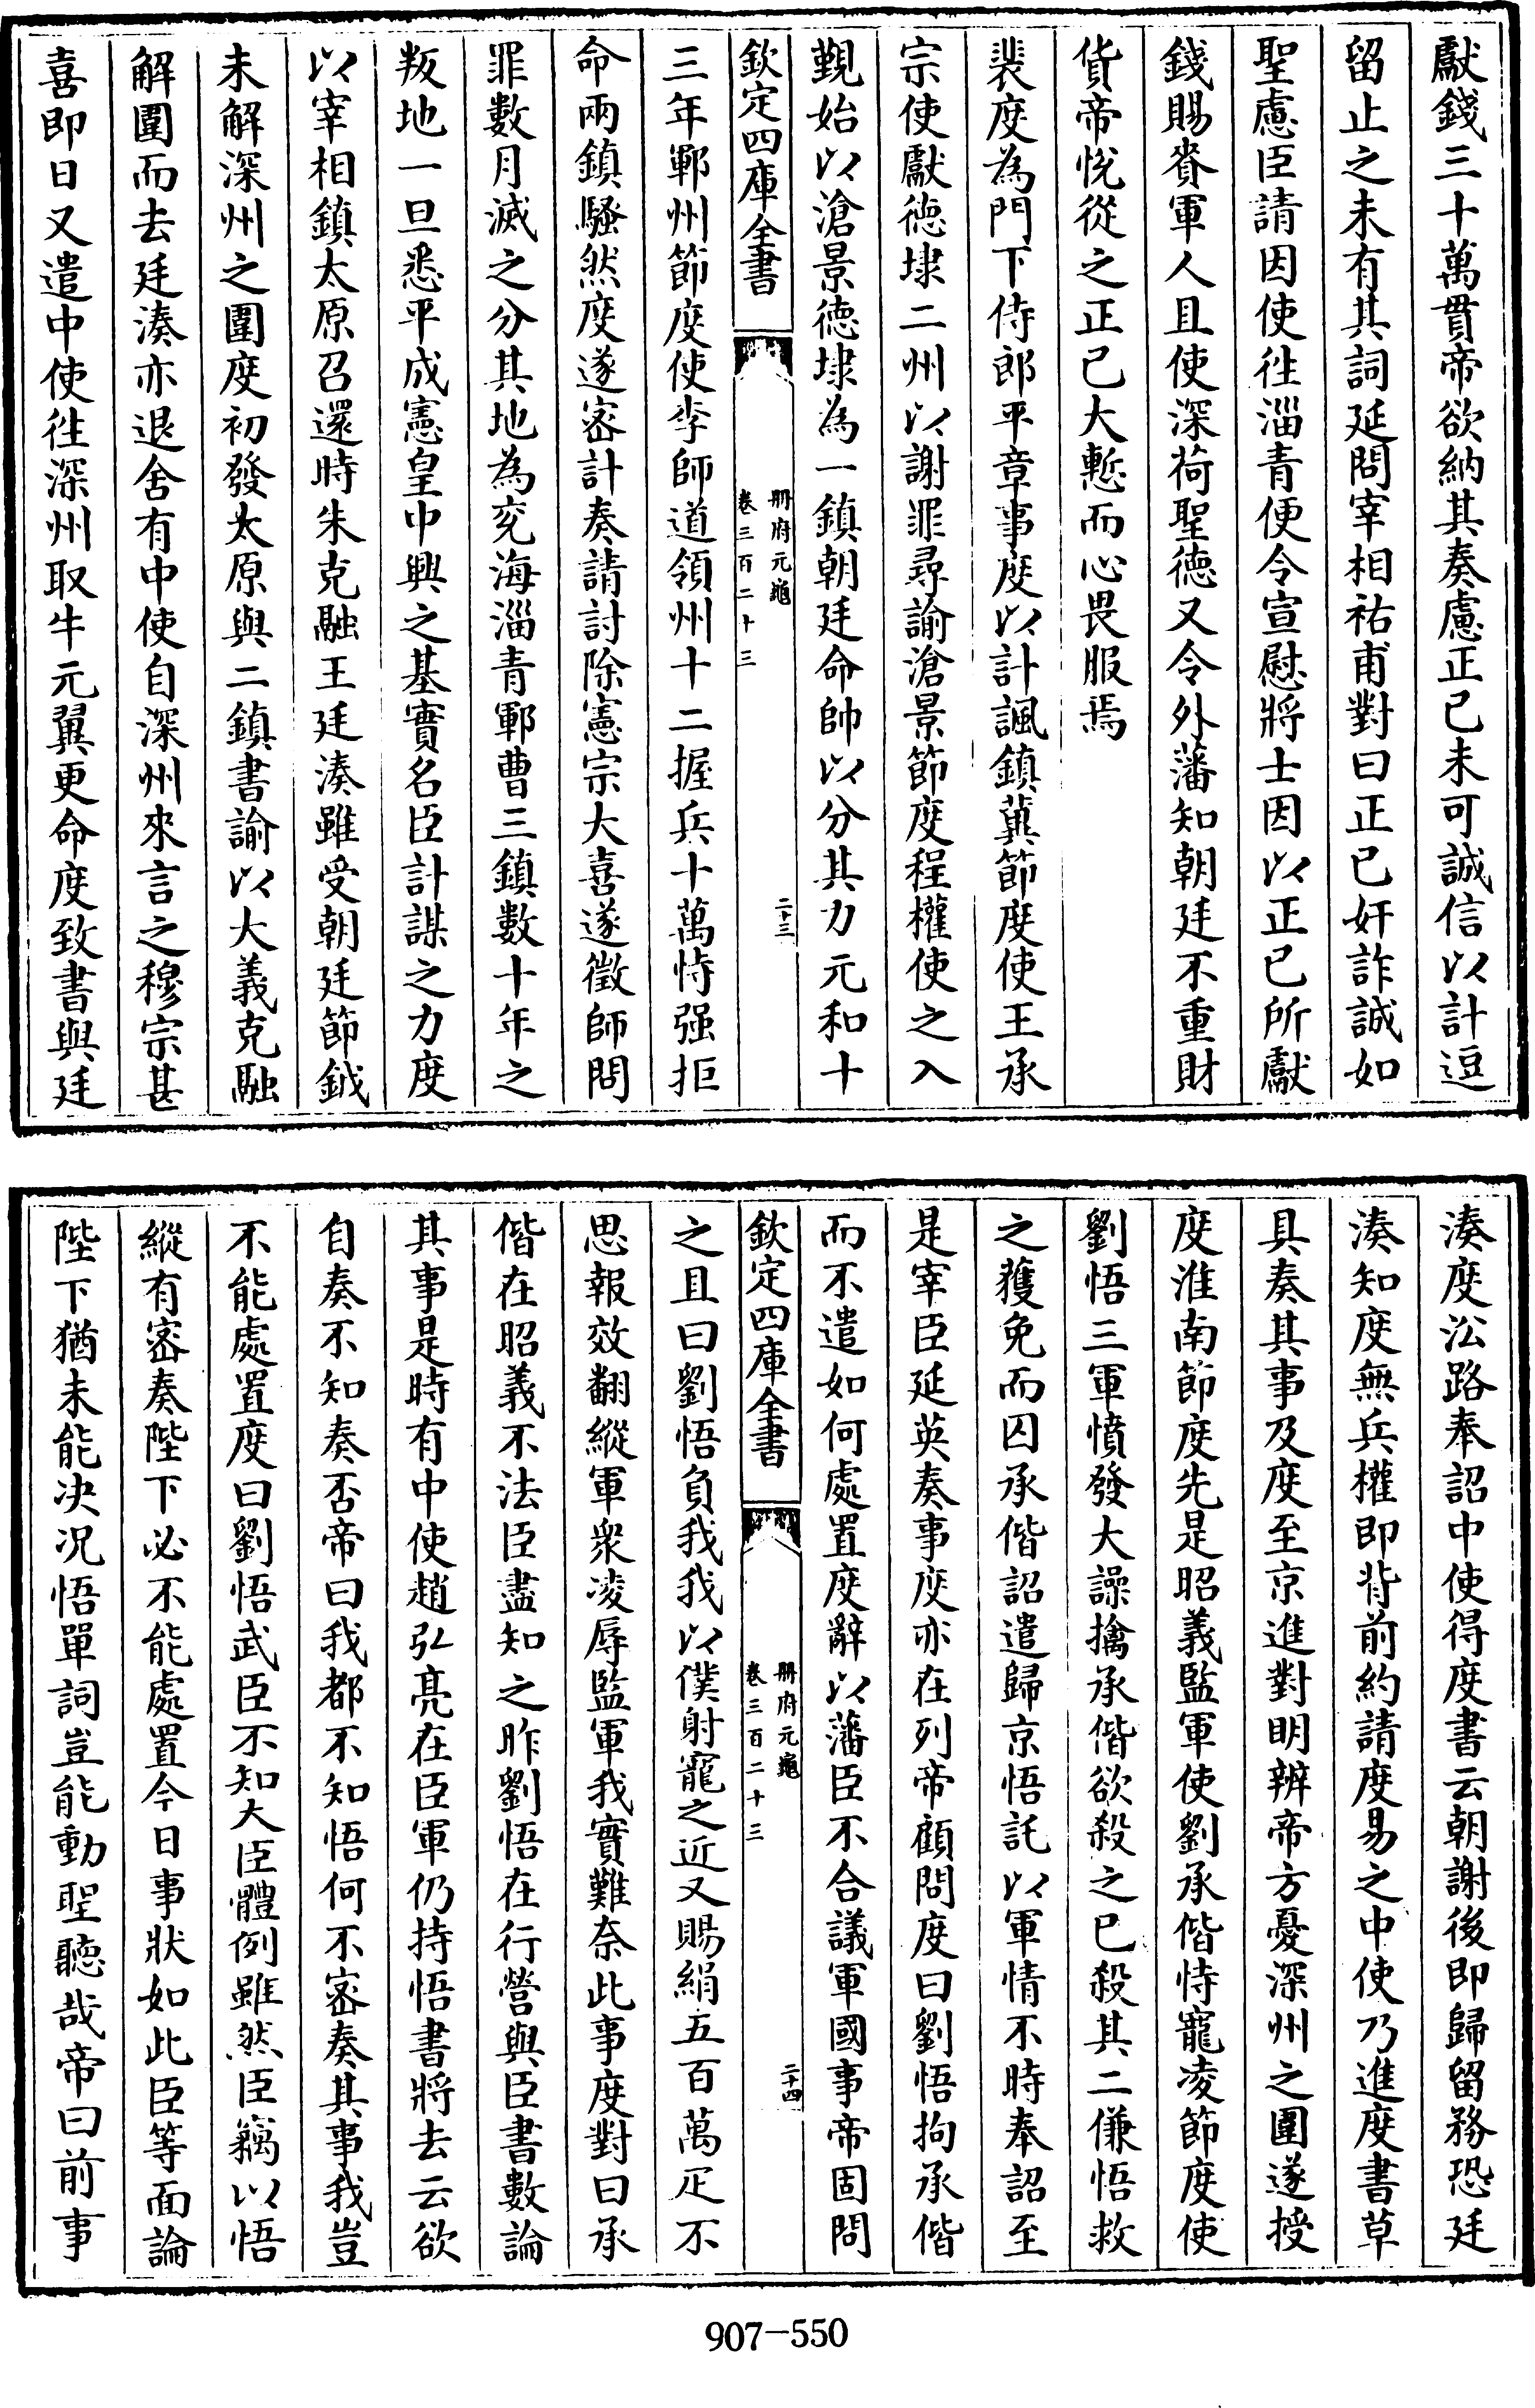 獻錢三十萬貫帝欲納其奏慮正已未可誠信以計逗
留止之未有其詞延問宰相祐甫對曰正已奸詐誠如
聖慮臣請因使往淄青便令宣慰將士因以正已所獻
錢賜賚軍人且使深荷聖德又令外藩知朝廷不重財
貨帝悅從之正已大慙而心畏服焉
裴度為門下侍郎平章事度以計諷鎮冀節度使王承
宗使獻德埭二州以謝罪尋諭滄景節度程權使之入
覲始以滄景德埭為一鎮朝廷命帥以分其力元和十
欽定四庫全書
冊府元龜
卷三百二十三
二十三
三年鄆州節度使李師道領州十二握兵十萬恃强拒
命兩鎮騷然度遂密計奏請討除憲宗大喜遂徵師問
罪數月滅之分其地為兖海淄青鄆曹三鎮數十年之
叛地一旦悉平成憲皇中興之基實名臣計謀之力度
以宰相鎮太原召還時朱克融王廷湊雖受朝廷節鉞
未解深州之圍度初發太原與二鎮書諭以大義克融
解圍而去廷湊亦退舍有中使自深州來言之穆宗甚
喜即日又遣中使往深州取牛元翼更命度致書與廷
湊度㳂路奉詔中使得度書云朝謝後即歸留務恐廷
湊知度無兵權即背前約請度易之中使乃進度書草
具奏其事及度至京進對明辨帝方憂深州之圍遂授
度淮南節度先是昭義監軍使劉承偕恃寵凌節度使
劉悟三軍憤發大譟擒承偕欲殺之已殺其二傔悟救
之獲免而囚承偕詔遣歸京悟託以軍情不時奉詔至
是宰臣延英奏事度亦在列帝顧問度曰劉悟拘承偕
而不遣如何處置度辭以藩臣不合議軍國事帝固問
欽定四庫全書
冊府元龜
卷三百二十三
二十四
之且曰劉悟負我我以僕射寵之近又賜絹五百萬疋不
思報效翻縱軍衆凌辱監軍我實難奈此事度對曰承
偕在昭義不法臣盡知之昨劉悟在行營與臣書數論
其事是時有中使趙弘亮在臣軍仍持悟書將去云欲
自奏不知奏否帝曰我都不知悟何不密奏其事我豈
不能處置度曰劉悟武臣不知大臣體例雖然臣竊以悟
縱有密奏陛下必不能處置今日事狀如此臣等面論
陛下猶未能決况悟單詞豈能動聖聽哉帝曰前事
907-550